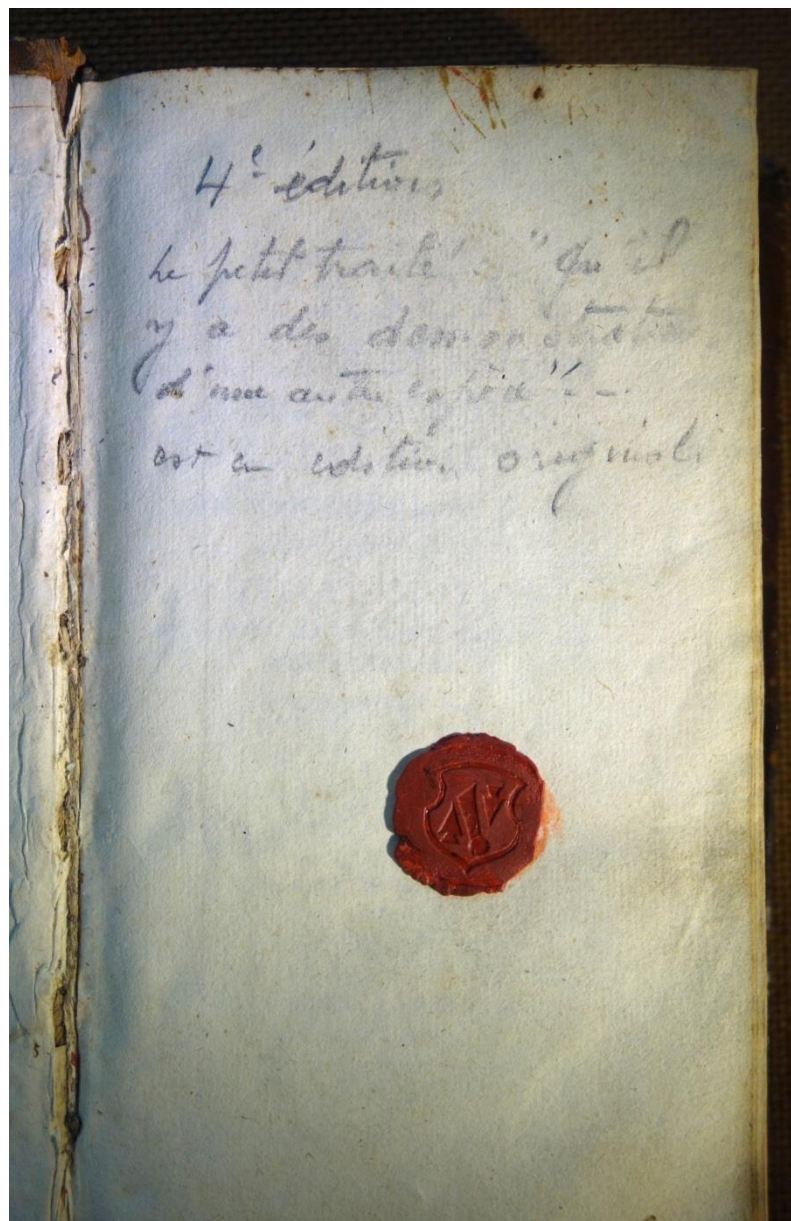 4e édition
Le petit traité : "Qu'il
y a des demonstrations
d'une autre espèce" -
est en edition originale